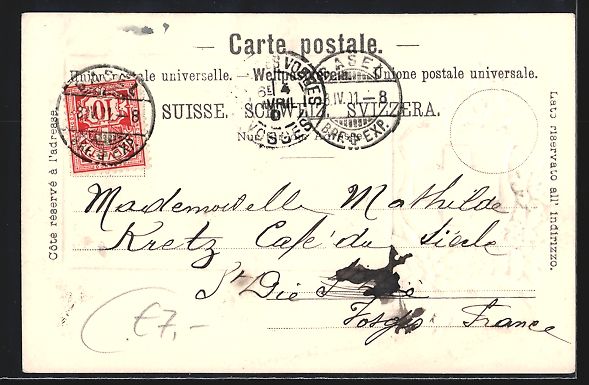 — Carte postale. —
Union postale universelle. — Weltpostverein. — Unione postale universale.
SUISSE. SCHWEIZ. SVIZZERA.
Côté réservé à l'adresse.
Lato riservato all' indirizzo.
10
BASEL
IV.01–8
BRF. EXP.
VOSGES
4
AVRIL
Mademoiselle Mathilde
Kretz Café du Siècle
St Dié
Vosges France
€7,-